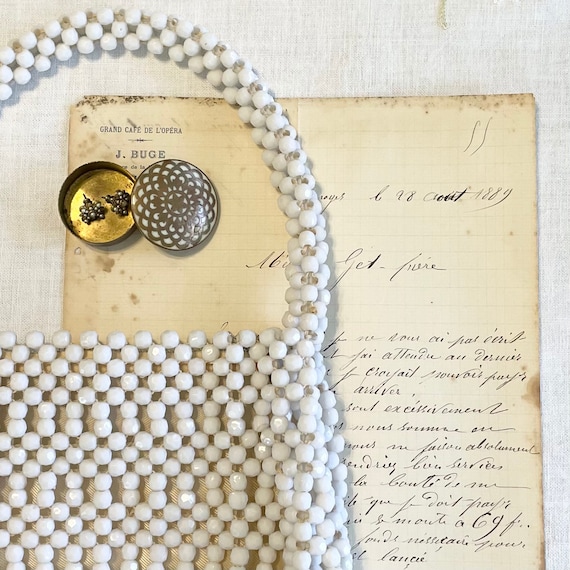 55
GRAND CAFÉ DE L'OPÉRA
J. BUGE
de la
le 28 août 1889
Get-frère
je ne vous ai pas écrit
j'ai attendu au dernier
je croyais pouvoir payer
arriver.
sont excessivement
nous sommes en
nous ne faisons absolument
bien services
la bonté de me
que je dois payer
se monte à 69 f.
fonds nécessaire pour
est lancé